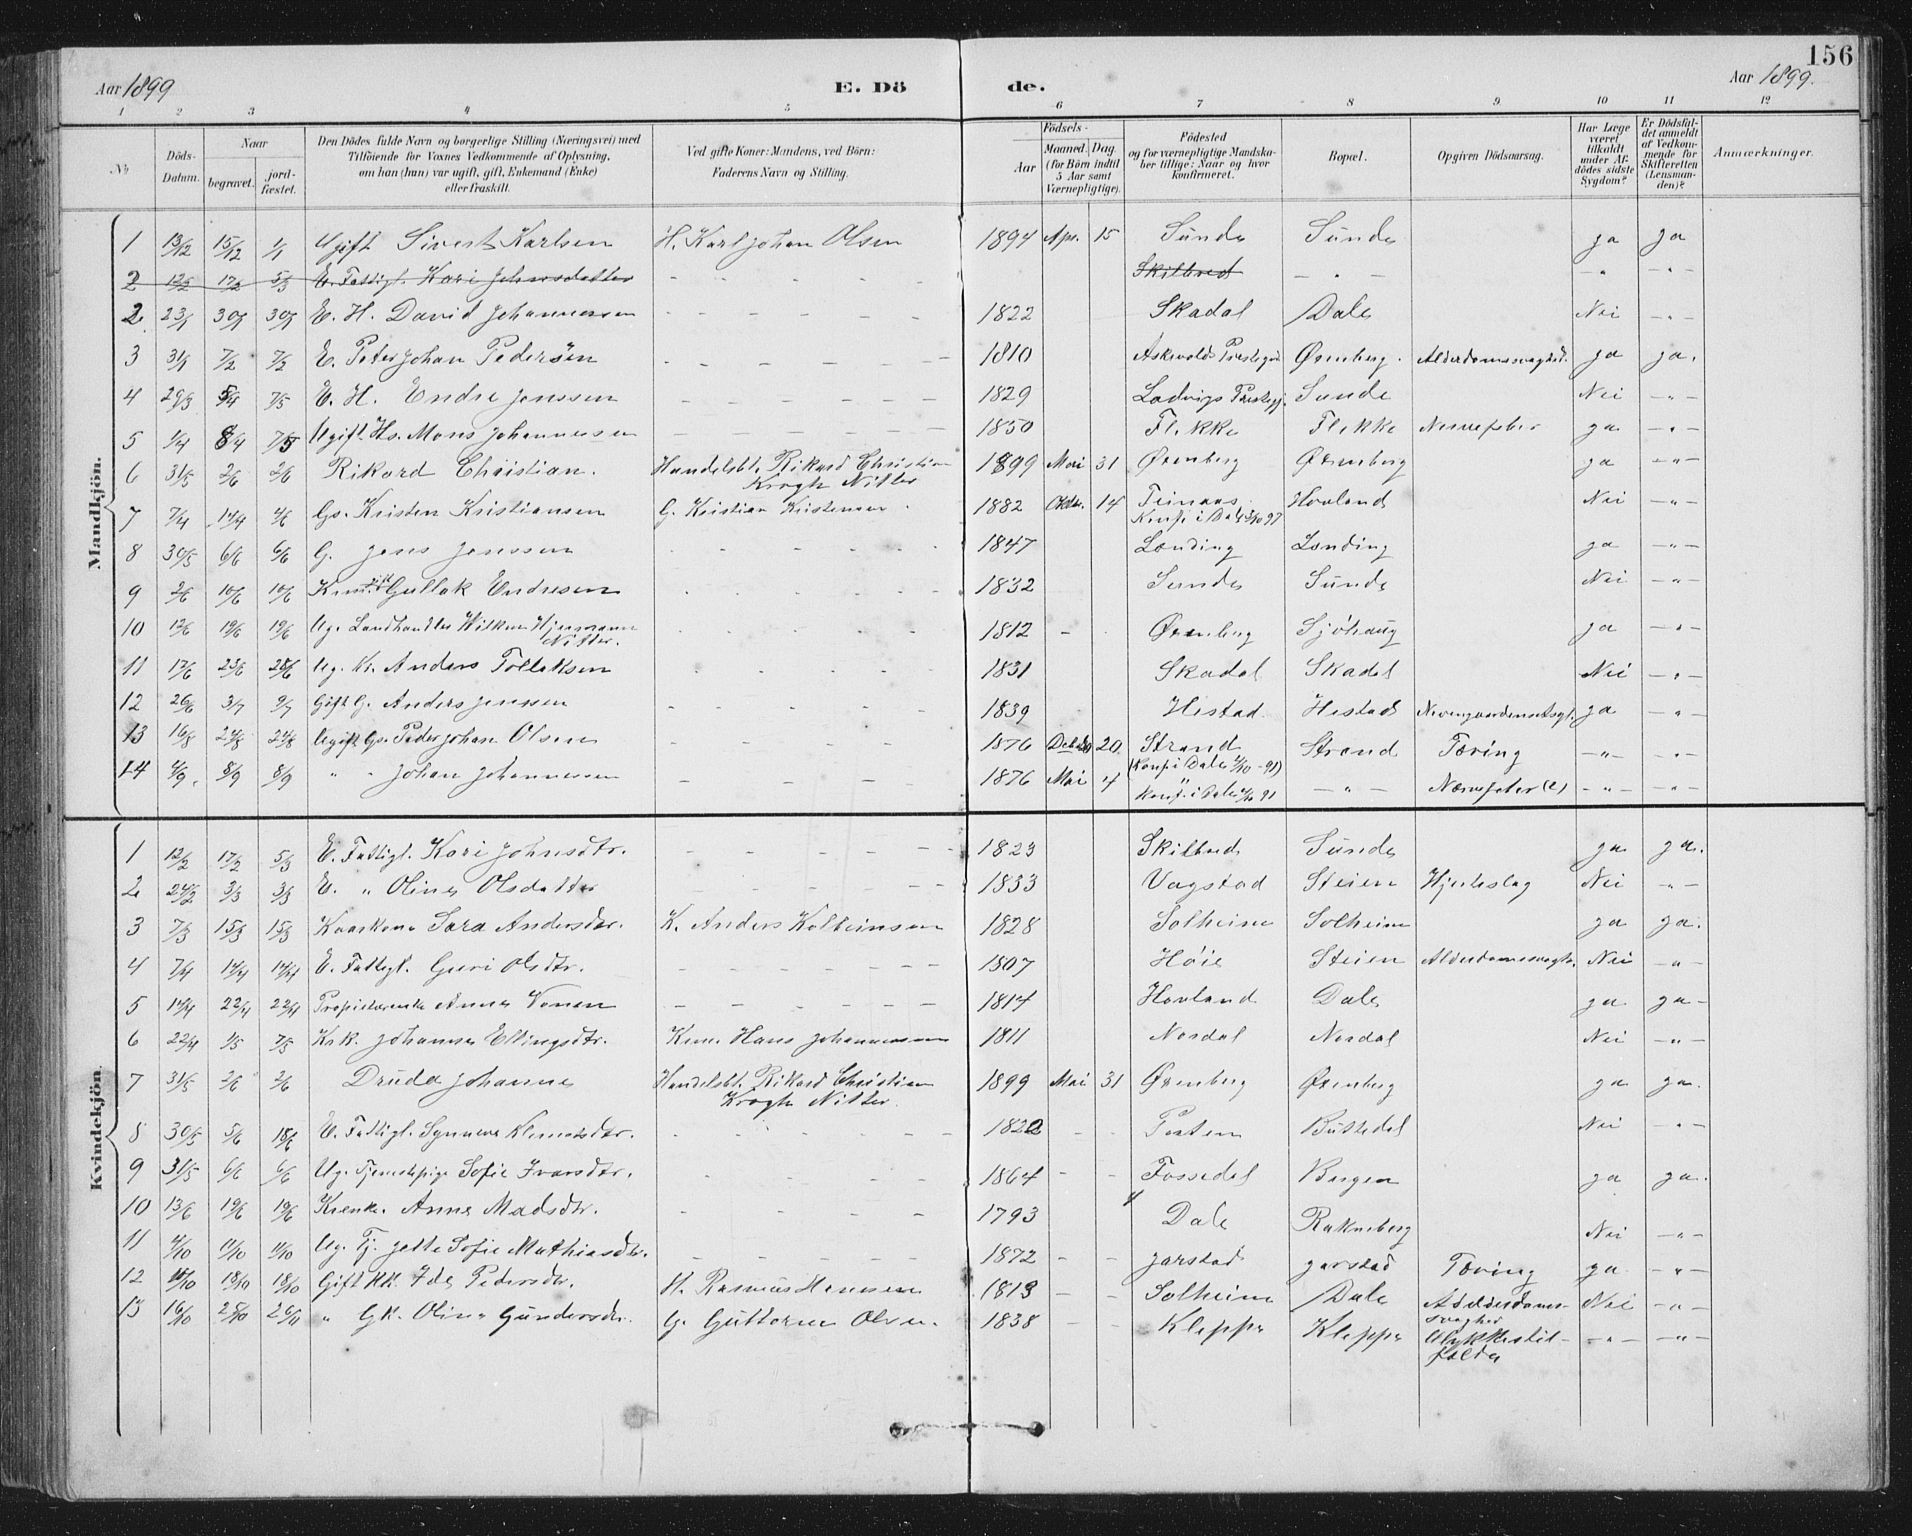 156
Aar 1899
E. Dö
de.
Aar 1899.
1 2 3 4 5 6 7 8 9 10 11 12
No
Döds-Datum.
Naar
begravet.
jord-fæstet.
Den Dödes fulde Navn og borgerlige Stilling (Næringsvei) med
Tilföiende for Voxnes Vedkommende af Oplysning,
om han (hun) var ugift, gift, Enkemand (Enke)
eller fraskilt.
Ved gifte Koner: Mandens, ved Börn:
Faderens Navn og Stilling.
Födsels-
Aar
Maaned. Dag.
(for Börn indtil
5 Aar samt
Værnepligtige).
Födested
og for værnepligtige Mandska-
ber tillige: Naar og hvor
konfirmeret.
Bopæl.
Opgiven Dödsaarsag.
Har Læge
været
tilkaldt
under Af-
dödes sidste
Sygdom?
Er Dödsfal-
det anmeldt
af Vedkom-
mende for
Skifteretten
(Lensman-
den)?
Anmærkninger.
Mandkjön.
1 13/12 15/12 1/1 Ugift Sivert Karlsen H. Karl Johan Olsen 1894 Apr. 15 Sunde Sunde ja ja
2 12/2 17/2 5/3 E. Fattigl. Kari Johnsdatter - - - Skilbred - " - - " - - " -
2 23/1 30/1 30/1 E. H. David Johannessen - - - 1822 Skadal Dale Nei - " -
3 31/1 7/2 7/2 E. Peter Johan Pedersen - - - 1810 Askevolds Præstegjd Ørenberg Alderdomssvaghed. ja ja.
4 29/3 5/4 7/5 E. H. Endre Jenssen - - - 1829 Ladvigs Præstegj. Sunde Nei - " -
5 1/4 8/4 7/5 Ugift Hs. Mons Johannessen - - - 1850 Flekke Flekke Nervefeber ja - " -
6 31/5 2/6 2/6 Rikard Christian. Handelsbt. Rikard Christian 1899 Mai 31 Ørenberg Ørenberg ja - " -
Krogh Nitter
7 7/4 14/4 4/6 Gs. Kristen Kristiansen G. Kristian Kristensen 1882 Oktbr. 14 Hovland Nei - " -
Konf. i Dale 97
8 30/5 6/6 6/6 G. Jens Jenssen - - - 1847 Lending Lending ja - " -
9 2/6 10/6 10/6 Gullak Endresen - - - 1832 Sunde Sunde Nei - " -
10 12/6 19/6 19/6 Ug. Landhandler Wilken Hjermann - - - 1812 - - Ørenberg Sjöhaug ja - " -
Nitter.
11 17/6 23/6 28/6 Ug. Kr. Anders Tollaksen - - - 1831 Skadal Skadal Nei - " -
12 26/6 3/7 9/7 Gift G. Anders Jenssen - - - 1839 Hestad Hestad ja - " -
13 16/8 24/8 24/8 Ugift Gs. Peder Johan Olsen - - - 1876 20 Strand Strand Tæring - " - - " -
(Konf. i Dale 4/10 - 91)
14 4/9 8/9 8/9 " " Johan Johannessen - - - 1876 Mai 4 " - " - Nervefeber (?) - " - - " -
Konf. i Dale 4/10 91
Kvindekjön.
1 12/2 17/2 5/3 E. Fattigl. Kari Johnsdtr. - - - 1823 Skilbred Sunde ja ja.
2 24/2 3/3 3/3 E. " Oline Olsdatter - - - 1833 Vagstad Steien Hjerteslag Nei - " -
3 7/3 15/3 15/3 Kaarkone Sara Andersdtr. K. Anders Kolbeinsen 1828 Solheim Solheim ja ja.
4 7/4 14/4 14/4 E. Fattigl. Guri Olsdtr. 1807 Höie Steien Alderdomssvagh. Nei - " -
5 14/4 22/4 22/4 Proprietærenke Anne Vonen - - - 1814 Hovland Dale ja ja -
6 22/4 1/5 7/5 Krk. Johanne Ellingsdtr. Krm. Hans Johannessen 1811 Nordal Nordal Nei - " -
7 31/5 2/6 2/6 Druda Johanne Handelsbt. Rikard Christian 1899 Mai 31 Ørenberg Ørenberg ja ja.
Krogh Nitter.
8 30/5 5/6 18/6 E. Fattigl. Synneve Klemetsdtr. - - - 1822 - - Nei - " -
9 31/5 6/6 6/6 Ug. Tjenestepige Sofie Ivarsdtr. - - - 1864 - - Fossedal Bergen ja ja.
10 13/6 19/6 19/6 Krenke. Anne Madsdtr. - - - 1793 Dale Nei - " -
11 4/10 11/10 11/10 Ug. Tj. Jette Sofie Mathiasdtr. - - - 1872 - - Jarstad Jarstad Tæring ja - " -
12 18/10 18/10 Gift HK. Ida Pedersdtr. H. Rasmus Hanssen 1813 - - Solheim Dale Alderdoms- Nei - " -
svaghed
13 16/10 25/10 " GK. Oline Gundersdtr. G. Guttorm Olsen. 1838 - - Kleppe Kleppe Ulykkestil- - " - - " -
fælde